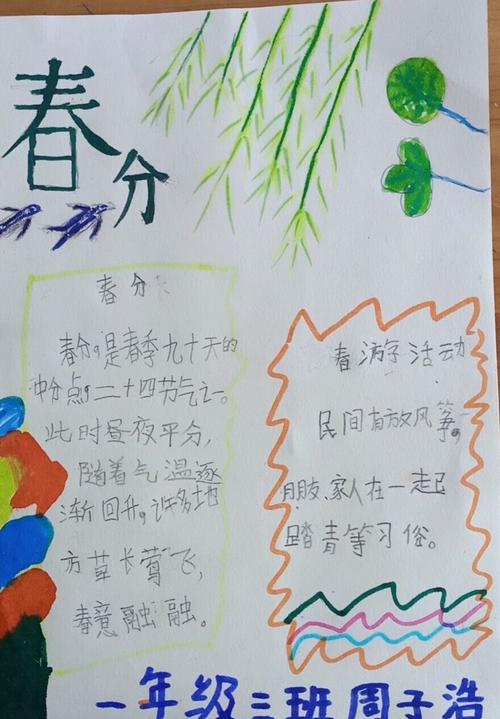 春分
春分
春分,是春季九十天的
中分点,二十四节气之一。
此时昼夜平分,
随着气温逐
渐回升。许多地
方草长莺飞,
春意融融。
春游活动
民间有放风筝,
朋友家人在一起
踏青等习俗。
一年级三班周子浩